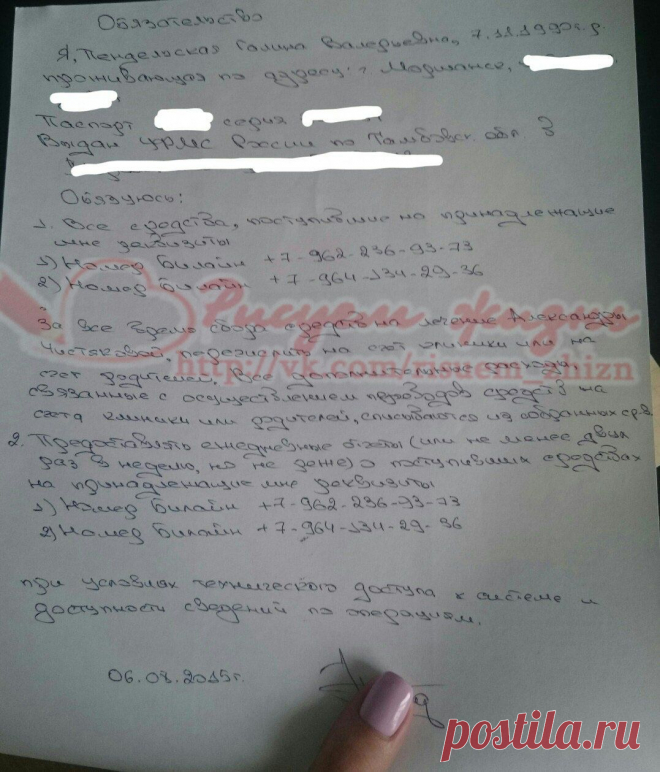 Обязательство
Я, Пендельская Галина Валерьевна, 7.11.1990г.р.
проживающая по адресу: г Моршанск,
Паспорт серия
Выдан УФМС России по Тамбовск. обл. в
Обязуюсь:
1. Все средства, поступившие на принадлежащие
мне реквизиты
1) Номер Билайн +7-962-236-93-73
2) Номер Билайн +7-964-134-29-36
За все время сбора средств на лечение Александры
Чистяковой, перечислить на счет клиники или на
счет родителей. Все дополнительные расходы
связанные с осуществлением переводов средств на
счета клиники или родителей, списываются из собранных ср-в.
2. Предоставлять ежедневные отчеты (или не менее двух
раз в неделю, но не реже) о поступивших средствах
на принадлежащие мне реквизиты
1) Номер Билайн +7-962-236-93-73
2) Номер Билайн +7-964-134-29-36
при условиях технического доступа к системе и
доступности сведений по операциям.
06.08.2015г.
Рисуем жизнь
http://vk.com/risuem_zhizn
postila.ru